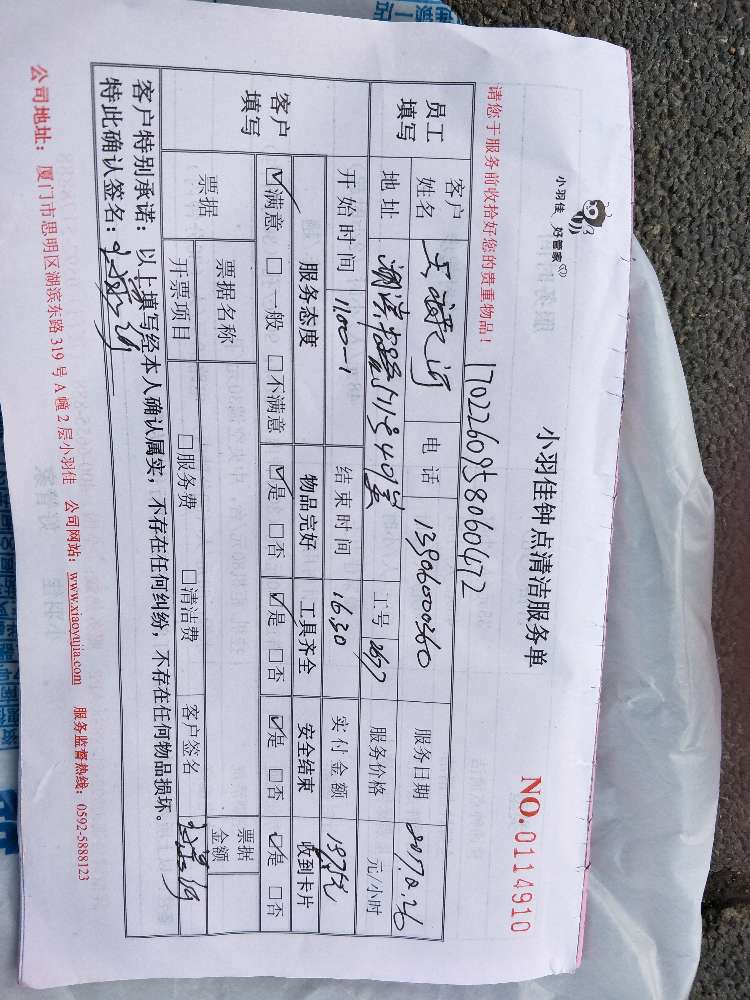 小羽佳 好管家
小羽佳钟点清洁服务单
NO.0114910
请您于服务前收拾好您的贵重物品！
17022609580604 72
员工填写 客户姓名 电话 13906000360 服务日期 2017.2.26
地址 工号 2677 服务价格 元/小时
客户填写 开始时间 11:00-1 结束时间 16:30 实付金额
服务态度 物品完好 工具齐全 安全结束 收到卡片
☑满意 □一般 □不满意 ☑是 □否 ☑是 □否 ☑是 □否 ☑是 □否
票据 票据名称 票据金额
开票项目 □服务费 □清洁费 客户签名
客户特别承诺：以上填写经本人确认属实，不存在任何纠纷，不存在任何物品损坏。
特此确认签名：
公司地址：厦门市思明区湖滨东路319号A幢2层小羽佳 公司网站：www.xiaoyujia.com 服务监督热线：0592-5888123